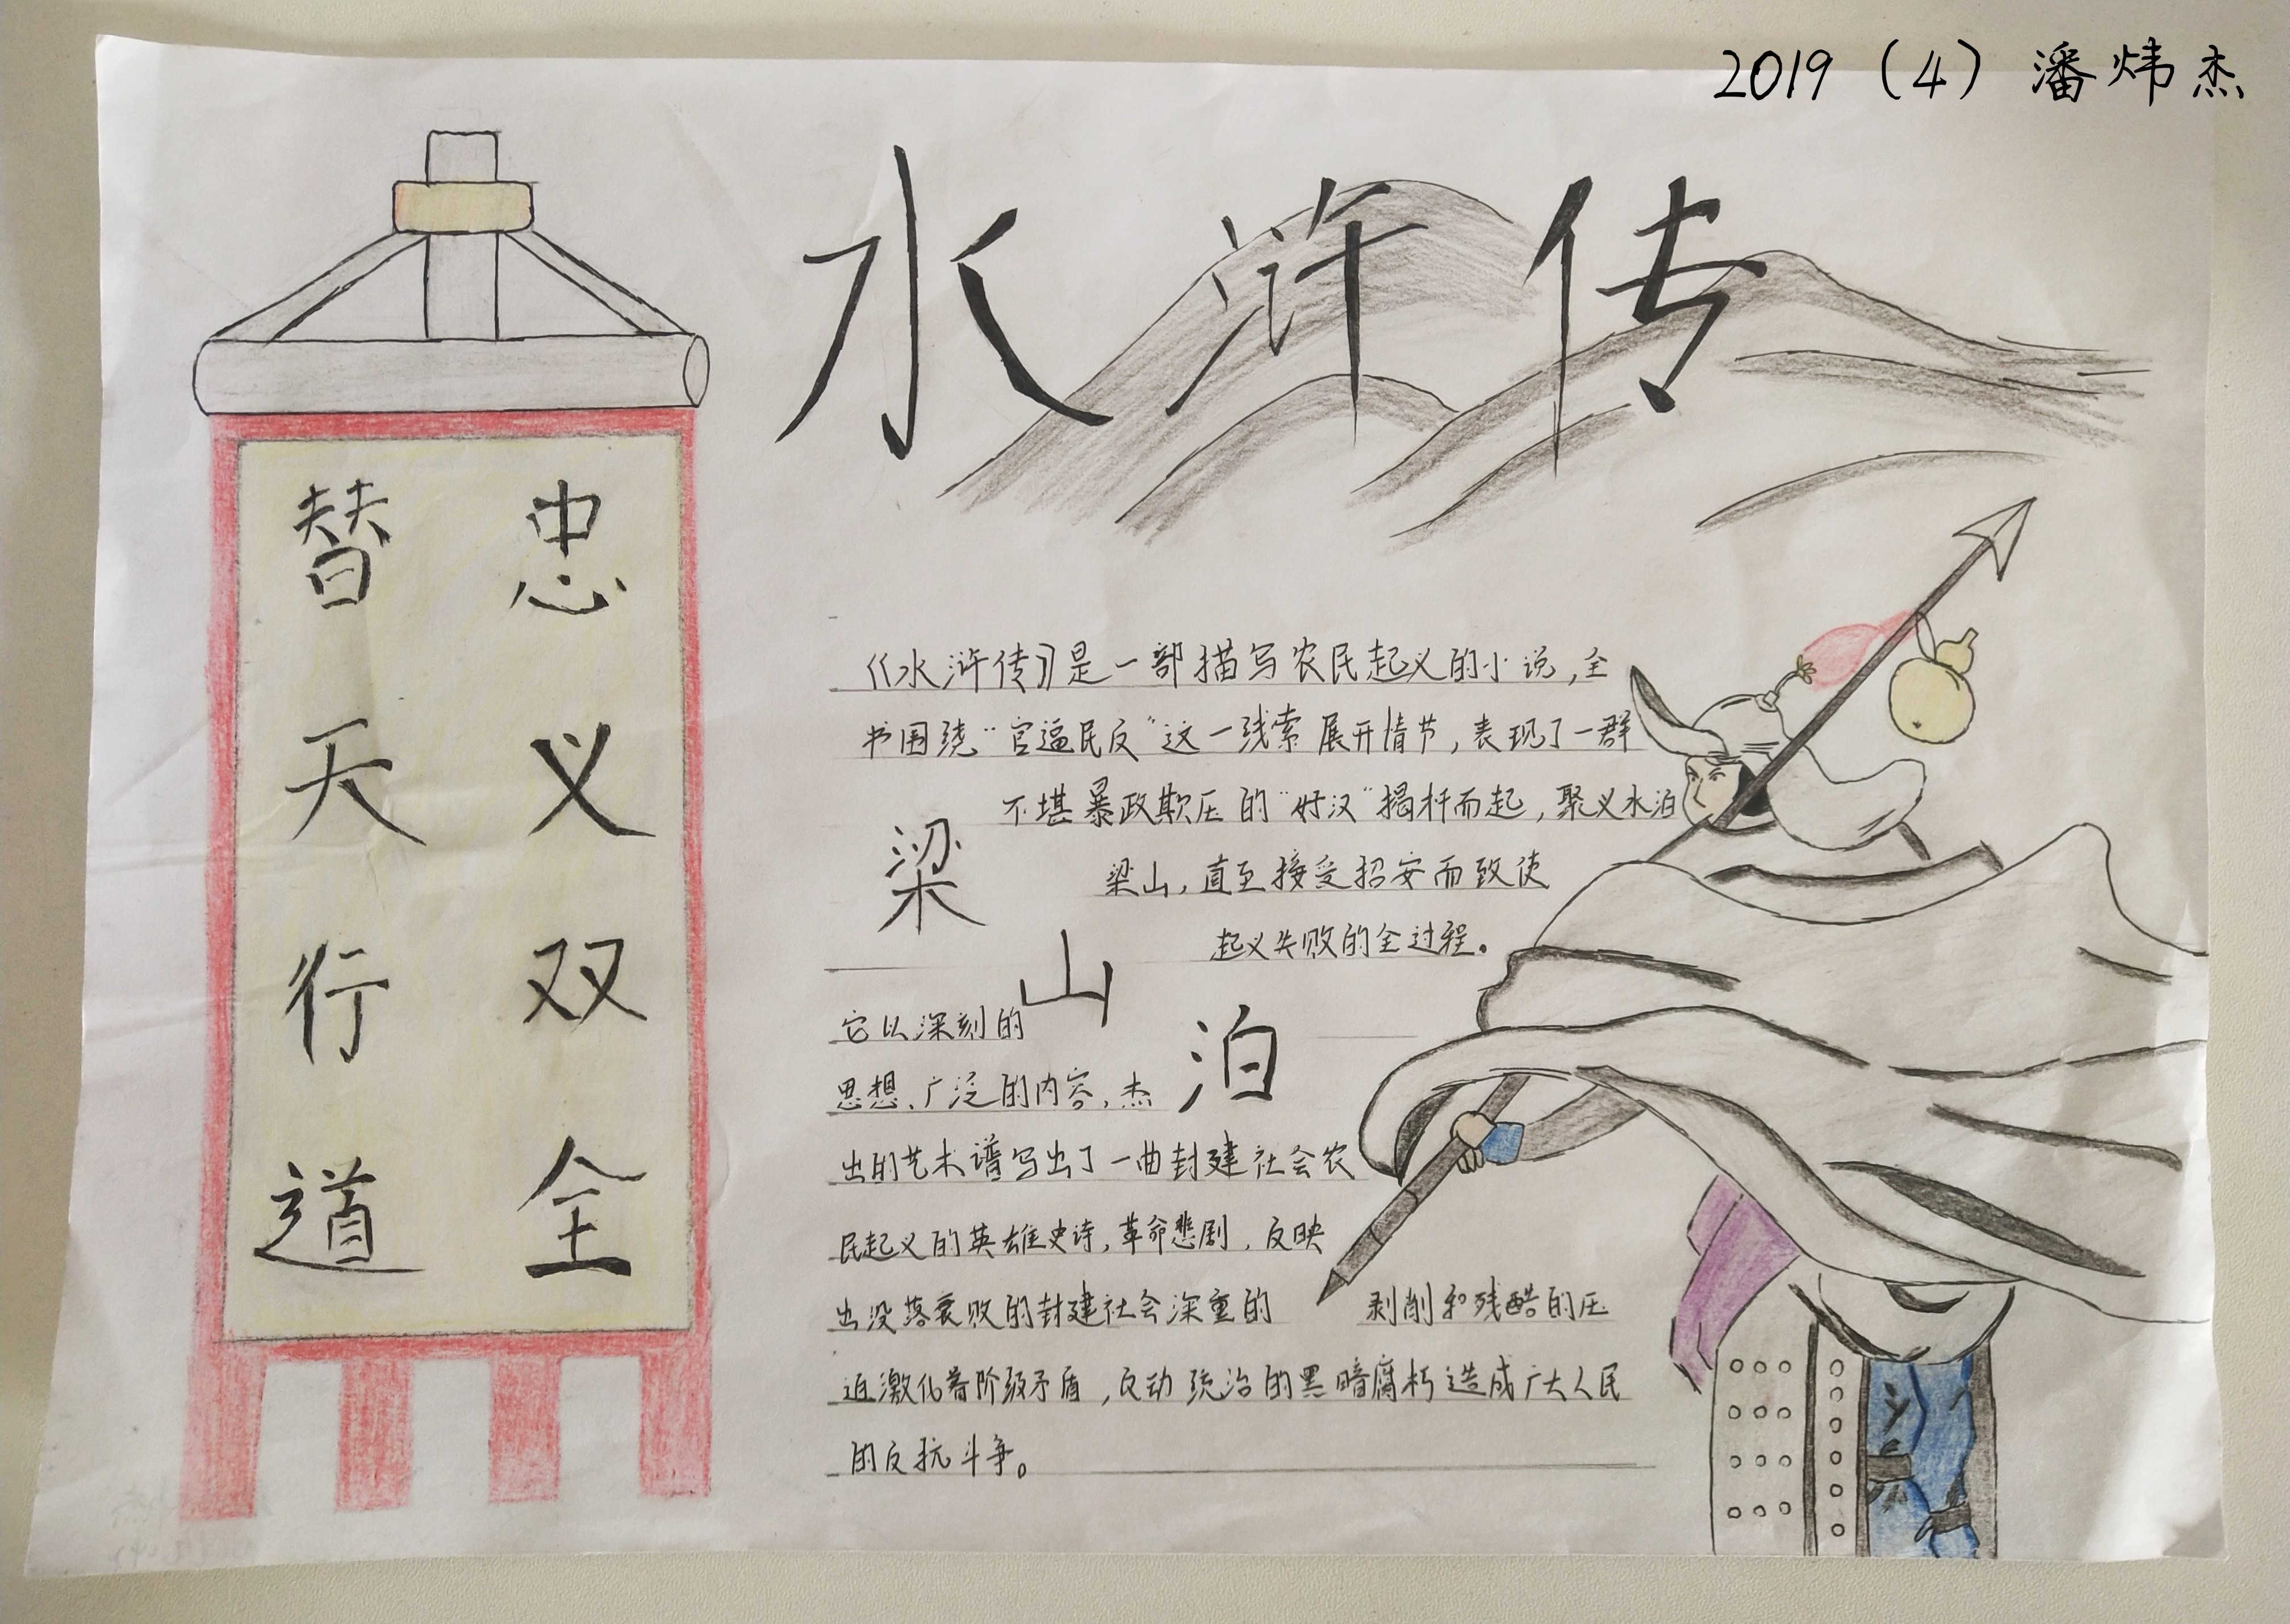 2019（4）潘炜杰
水浒传
忠义双全
替天行道
《水浒传》是一部描写农民起义的小说,全
书围绕“官逼民反”这一线索展开情节,表现了一群
不堪暴政欺压的“好汉”揭杆而起,聚义水泊
梁山,直至接受招安而致使
起义失败的全过程。
梁山泊
它以深刻的
思想、广泛的内容,杰
出的艺术谱写出了一曲封建社会农
民起义的英雄史诗,革命悲剧,反映
出没落衰败的封建社会深重的 剥削和残酷的压
迫激化着阶级矛盾,反动统治的黑暗腐朽造成广大人民
的反抗斗争。